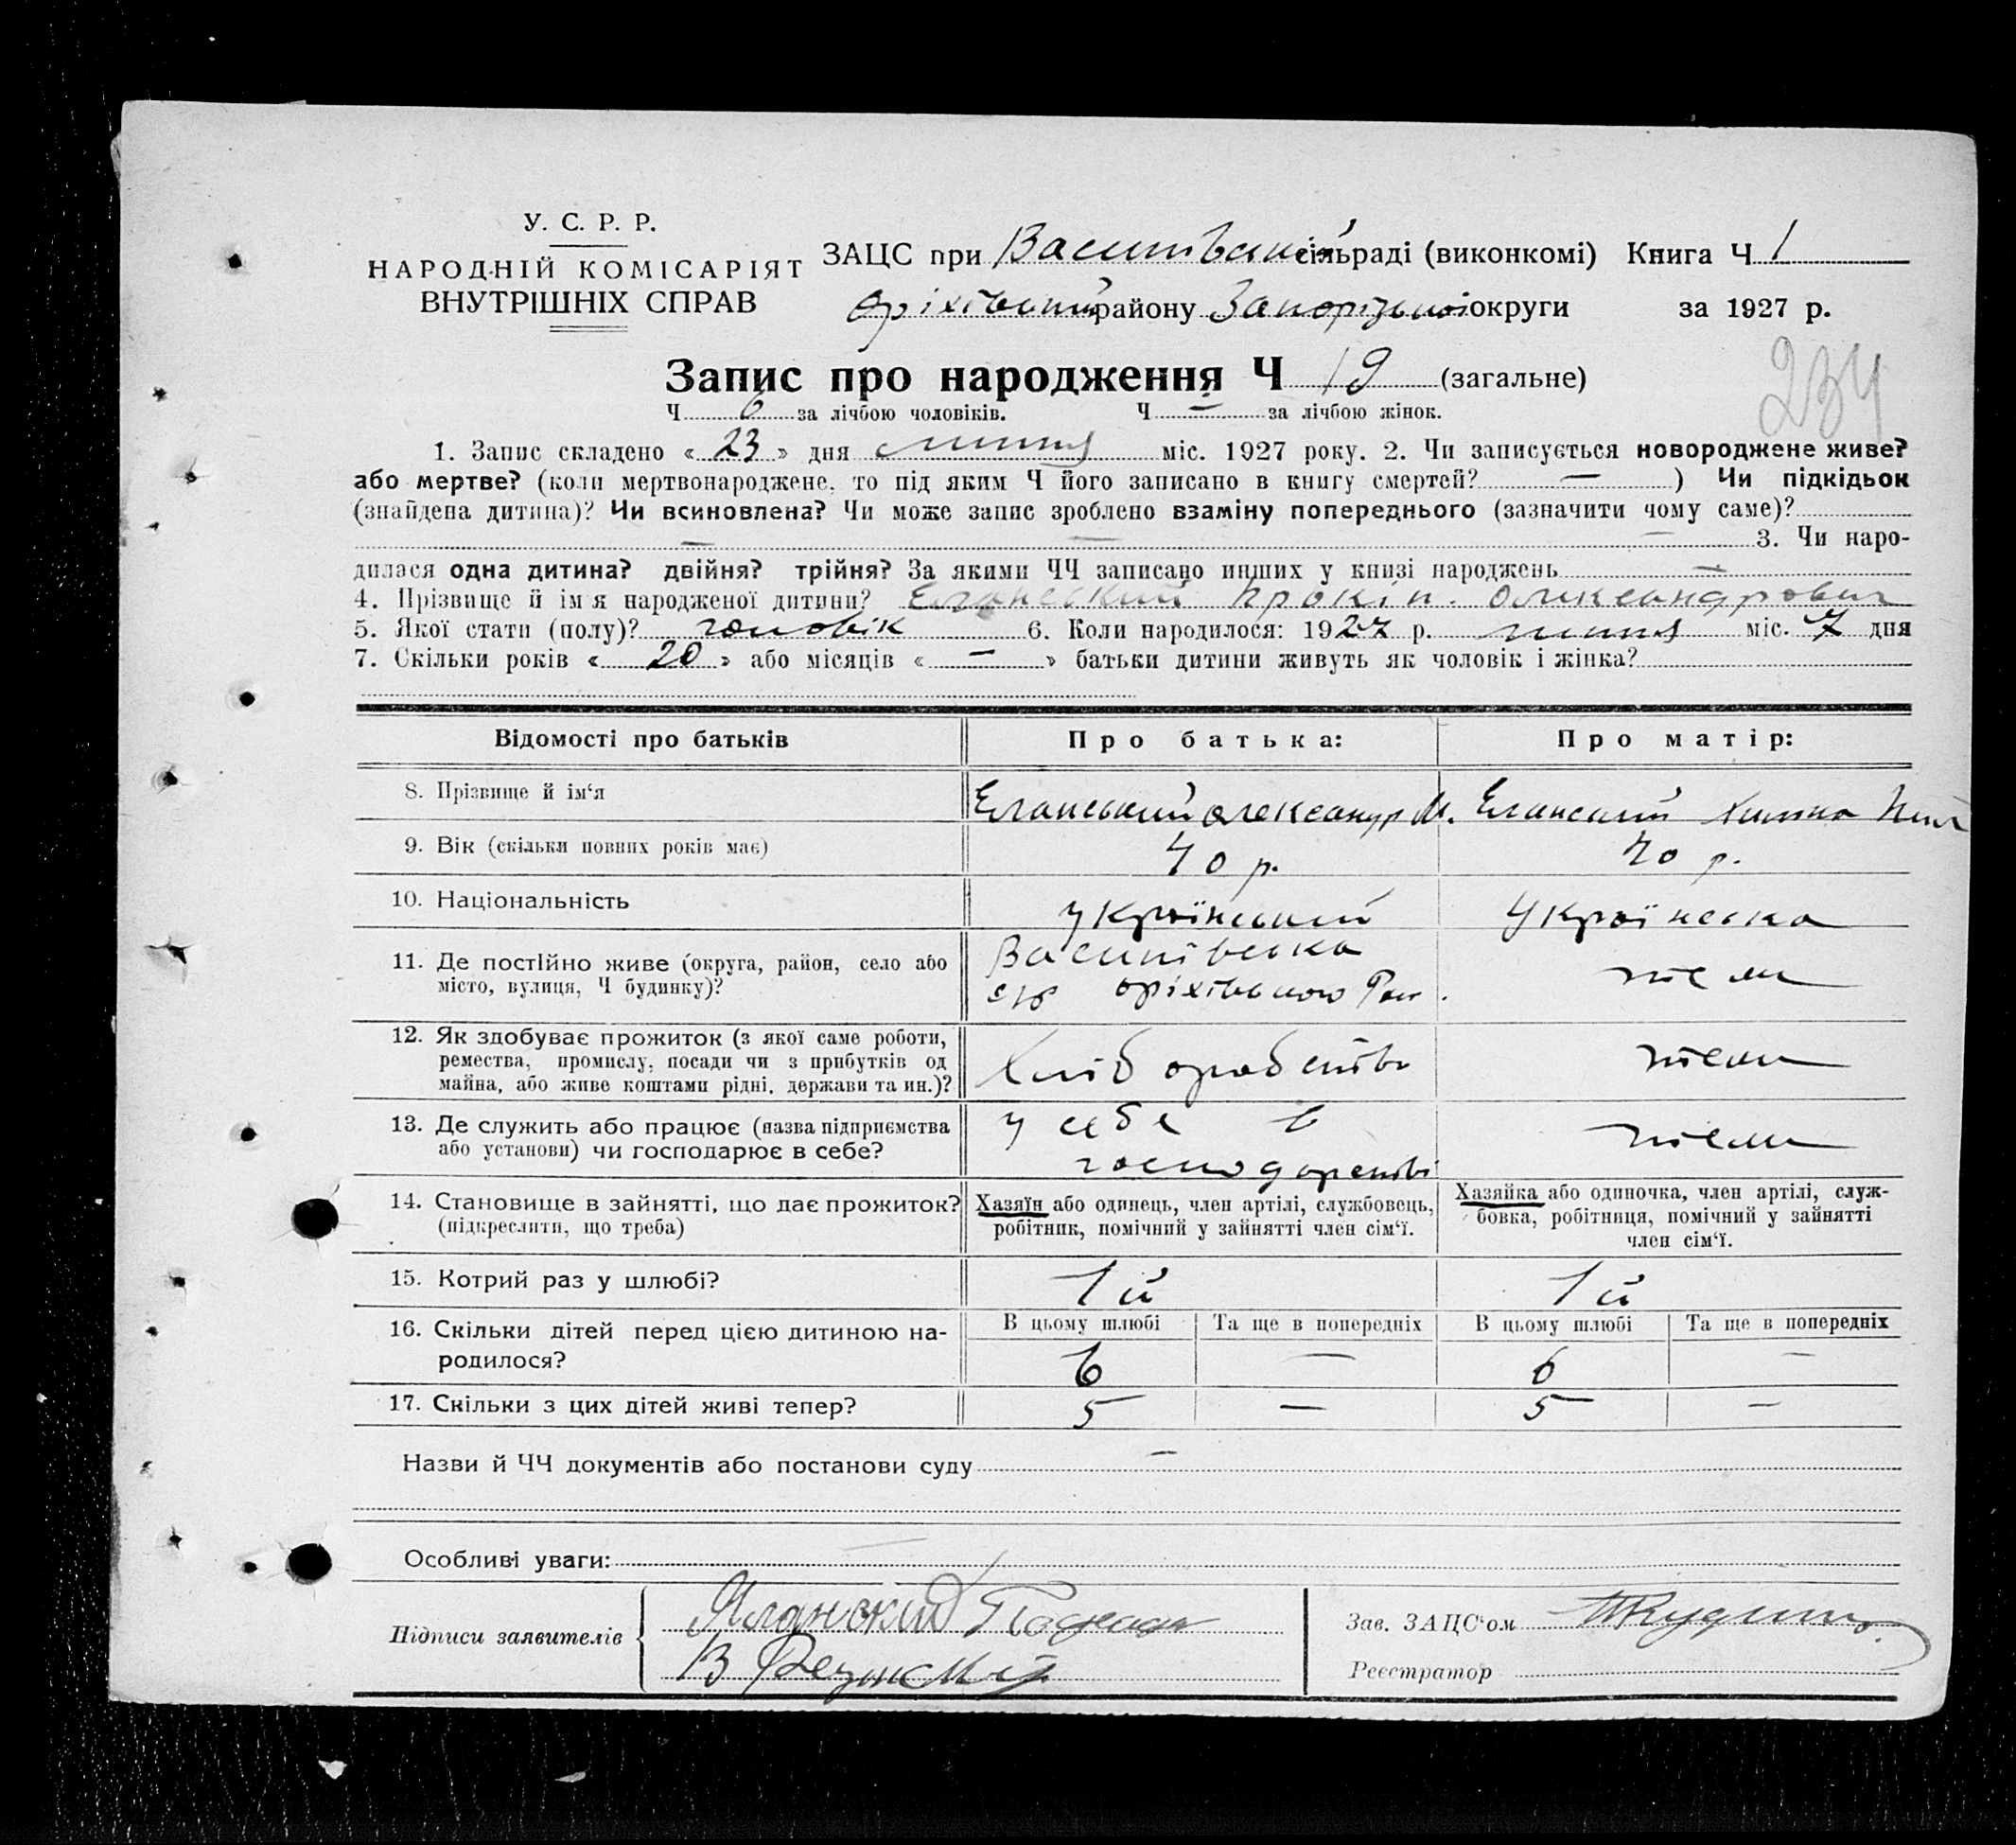 У. С. Р. Р.
НАРОДНІЙ КОМІСАРІЯТ
ВНУТРІШНІХ СПРАВ
ЗАЦС при сільраді (виконкомі) Книга Ч 1
Оріхівський району Запорізької округи за 1927 р.
234
Запис про народження Ч 19 (загальне)
Ч 6 за лічбою чоловіків. Ч — за лічбою жінок.
1. Запис складено « 23 » дня липня міс. 1927 року. 2. Чи записується новороджене живе?
або мертве? (коли мертвонароджене, то під яким Ч його записано в книгу смертей? — ) Чи підкідьок
(знайдена дитина)? Чи всиновлена? Чи може запис зроблено взаміну попереднього (зазначити чому саме)?
— — — 3. Чи наро-
дилася одна дитина? двійня? трійня? За якими ЧЧ записано инших у книзі народжень —
4. Прізвище й ім'я народженої дитини? Еланський Прокіп. Олександрович
5. Якої стати (полу)? чоловік 6. Коли народилося: 1927 р. липня міс. 7 дня
7. Скільки років « 20 » або місяців « — » батьки дитини живуть як чоловік і жінка?
Відомості про батьків Про батька: Про матір:
8. Прізвище й ім'я Еланський Олександр М. Еланський
9. Вік (скільки повних років має) 40 р. 40 р.
10. Національність український Українська
11. Де постійно живе (округа, район, село або
місто, вулиця, Ч будинку)? Оріхівського Рай. тіеж
12. Як здобуває прожиток (з якої саме роботи,
ремества, промислу, посади чи з прибутків од
майна, або живе коштами рідні, держави та ин.)? Хліборобство
13. Де служить або працює (назва підприємства
або установи) чи господарює в себе? у себе в
господарстві
14. Становище в зайнятті, що дає прожиток?
(підкреслити, що треба)
Хазяїн або одинець, член артілі, службовець,
робітник, помічний у зайнятті член сім'ї.
Хазяйка або одиночка, член артілі, служ-
бовка, робітниця, помічний у зайнятті
член сім'ї.
15. Котрий раз у шлюбі? 1й 1й
16. Скільки дітей перед цією дитиною на-
родилося?
В цьому шлюбі Та ще в попередніх В цьому шлюбі Та ще в попередніх
6 — 6 —
17. Скільки з цих дітей живі тепер? 5 — 5 —
Назви й ЧЧ документів або постанови суду —
Особливі уваги:
Підписи заявителів
Зав. ЗАЦС'ом
Реєстратор